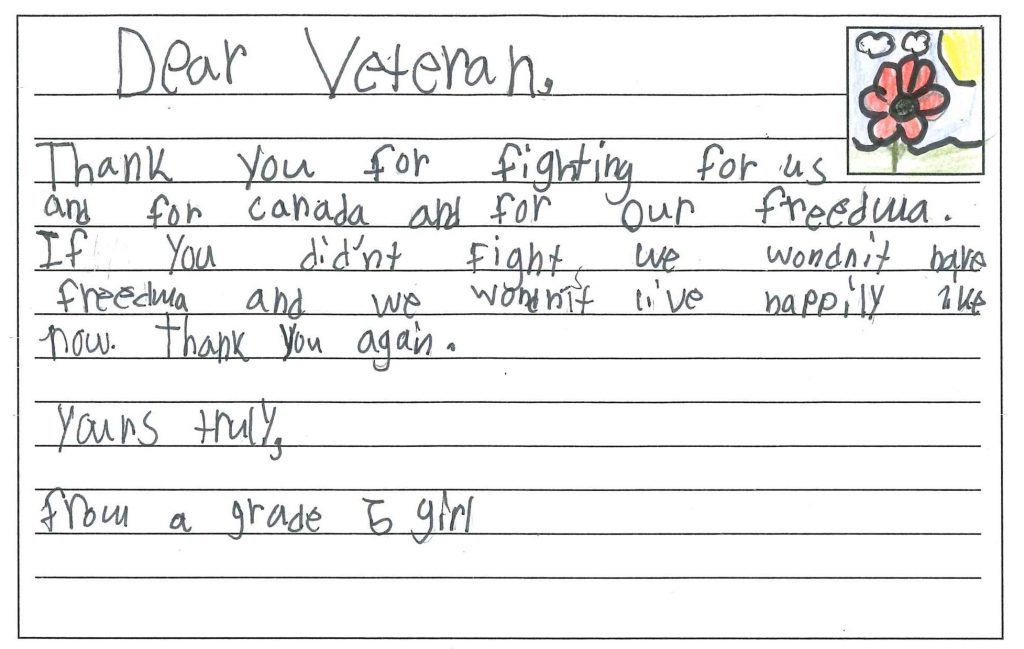 Dear Veteran,
Thank you for fighting for us
and for canada and for our freedma.
If you did'nt Fight, we wondn't have
freedma and we wondn't li've happily like
now. Thank you again.
yours truly,
from a grade 5 girl